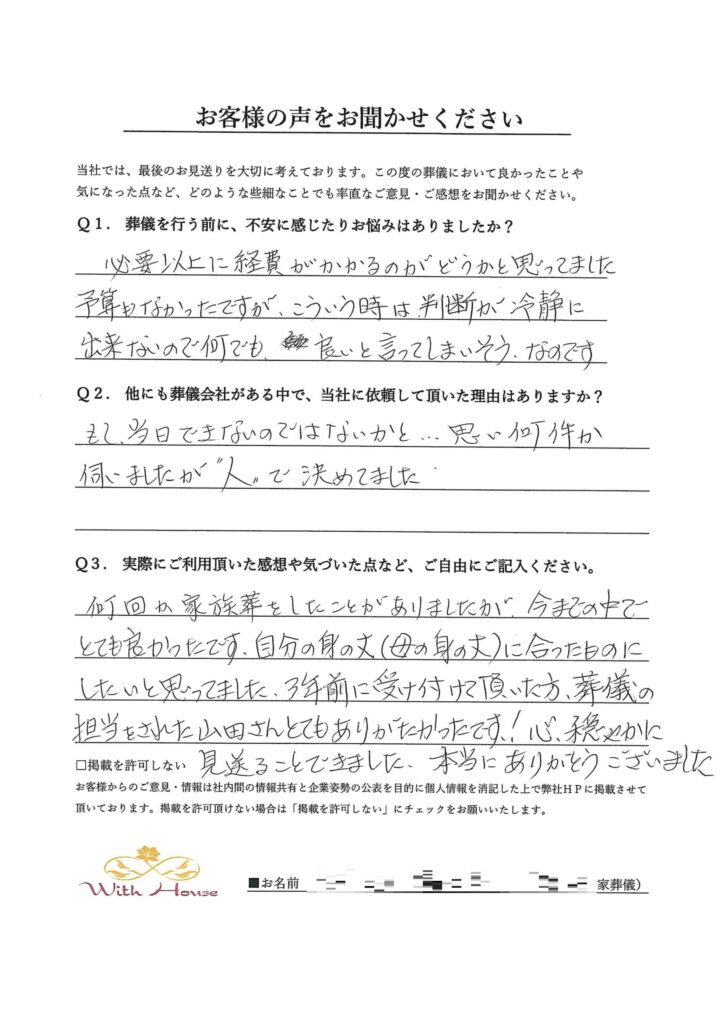 お客様の声をお聞かせください
当社では、最後のお見送りを大切に考えております。この度の葬儀において良かったことや
気になった点など、どのような些細なことでも率直なご意見・ご感想をお聞かせください。
Q1. 葬儀を行う前に、不安に感じたりお悩みはありましたか?
必要以上に経費がかかるのがどうかと思ってました
予算もなかったですが、こういう時は判断が冷静に
出来ないので何でも、良いと言ってしまいそう、なのです
Q2. 他にも葬儀会社がある中で、当社に依頼して頂いた理由はありますか?
もし、当日できないのではないかと…思い何件か
伺いましたが〝人〟で決めてました
Q3. 実際にご利用頂いた感想や気づいた点など、ご自由にご記入ください。
何回か家族葬をしたことがありましたが、今までの中で
とても良かったです、自分の身の丈(母の身の丈)に合ったものに
したいと思ってました、3年前に受け付けて頂いた方、葬儀の
担当をされた山田さんとてもありがたかったです!心、穏やかに
□掲載を許可しない 見送ることできました、本当にありがとうございました
お客様からのご意見・情報は社内間の情報共有と企業姿勢の公表を目的に個人情報を消記した上で弊社HPに掲載させて
頂いております。掲載を許可頂けない場合は「掲載を許可しない」にチェックをお願いいたします。
With House
■お名前 家葬儀)